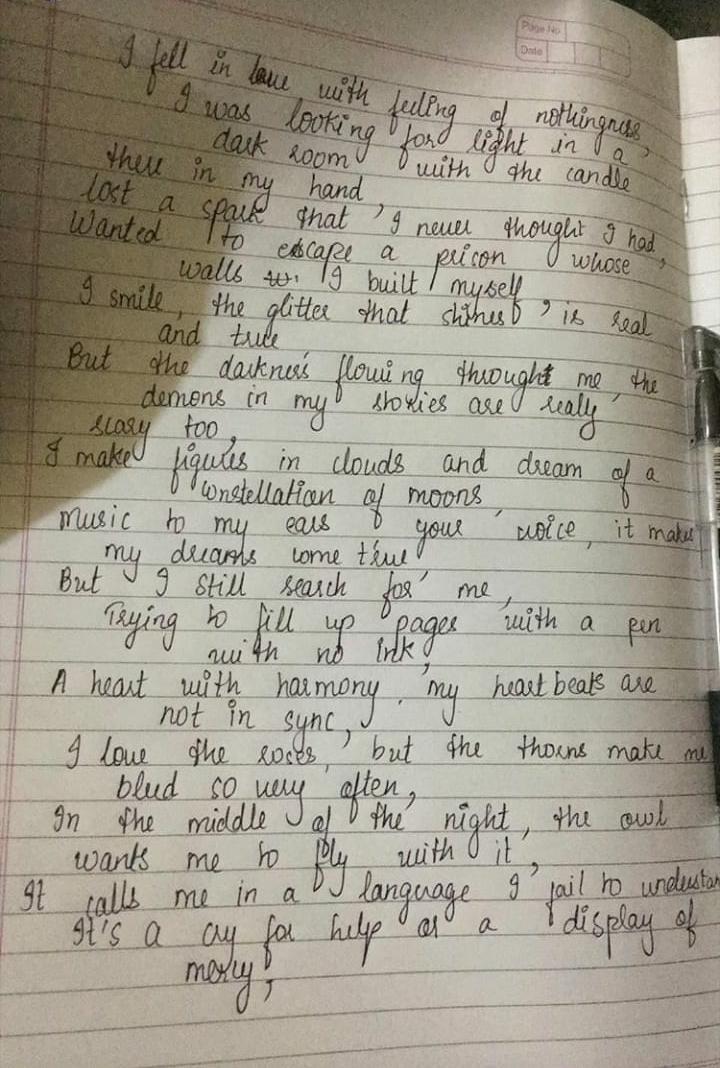 Page No
Date
I fell in love with feeling of nothingness,
I was looking for light in a
dark room with the candle
there in my hand,
lost a spark that I never thought I had,
Wanted to escape a prison whose
walls I built myself
I smile, the glitter that shines, is real
and true
But the darkness flowing throught me, the
demons in my stories are really
scary too,
I make figures in clouds and dream of a
constellation of moons,
Music to my ears your voice, it makes
my dreams come true
But I still search for me,
Trying to fill up pages with a pen
with no ink,
A heart with harmony, my heart beats are
not in sync,
I love the roses, but the thorns make me
bleed so very often,
In the middle of the night, the owl
wants me to fly with it,
It calls me in a language I fail to understan
It's a cry for help or a display of
mercy,